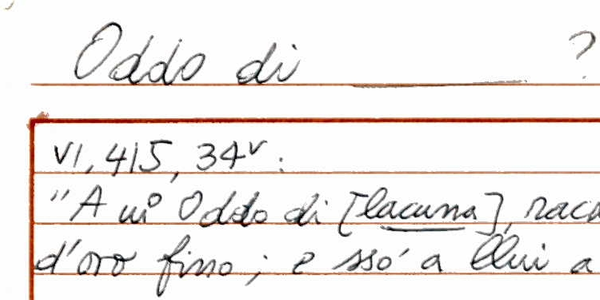 Oddo di ______ ?
VI, 415, 34v:
"A mº Oddo di [lacuna], raca
d'oro fino; e ssó a llui a